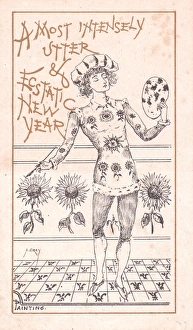 A MOST INTENSELY
UTTER &
ECSTATIC
NEW
YEAR
PAINTING.